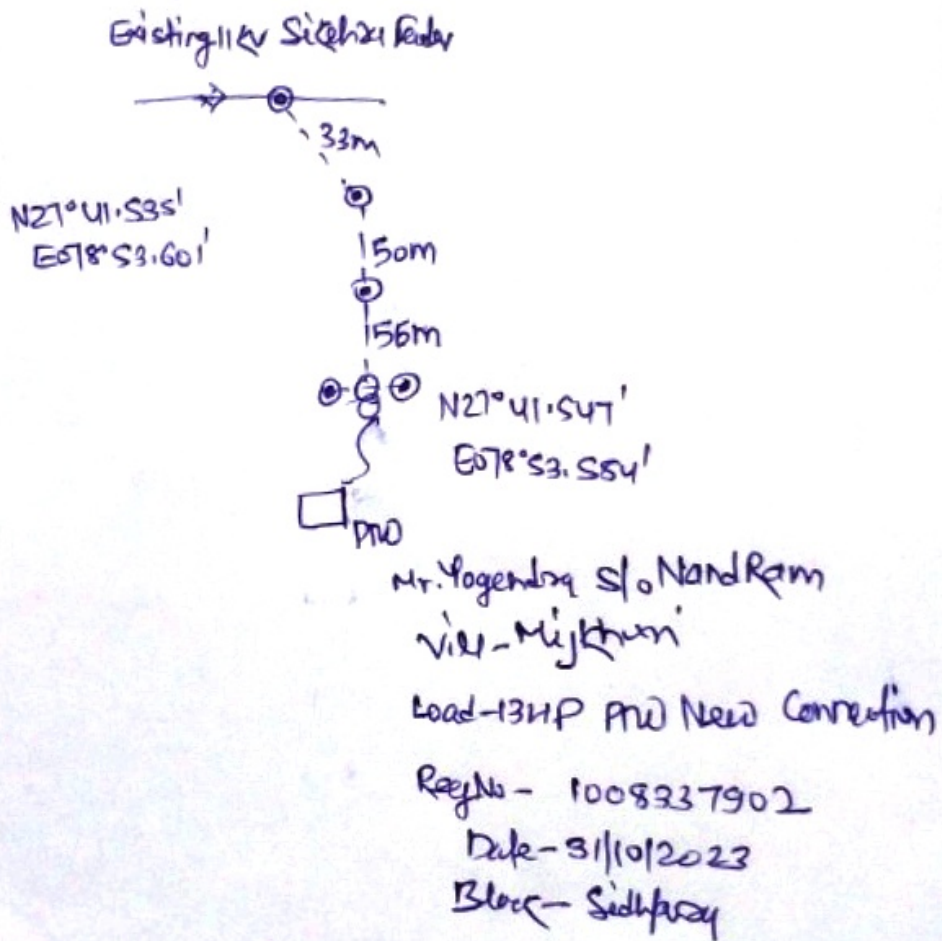 Existing 11KV Sikehra Feeder
33m
N27°41.535'
E078°53.601'
50m
56m
N27°41.547'
E078°53.554'
PTW
Mr. Yogendra S/o Nand Ram
Vill-Mijkhuri
Load-13HP PTW New Connection
Reg No- 1008337902
Date-31/10/2023
Block-